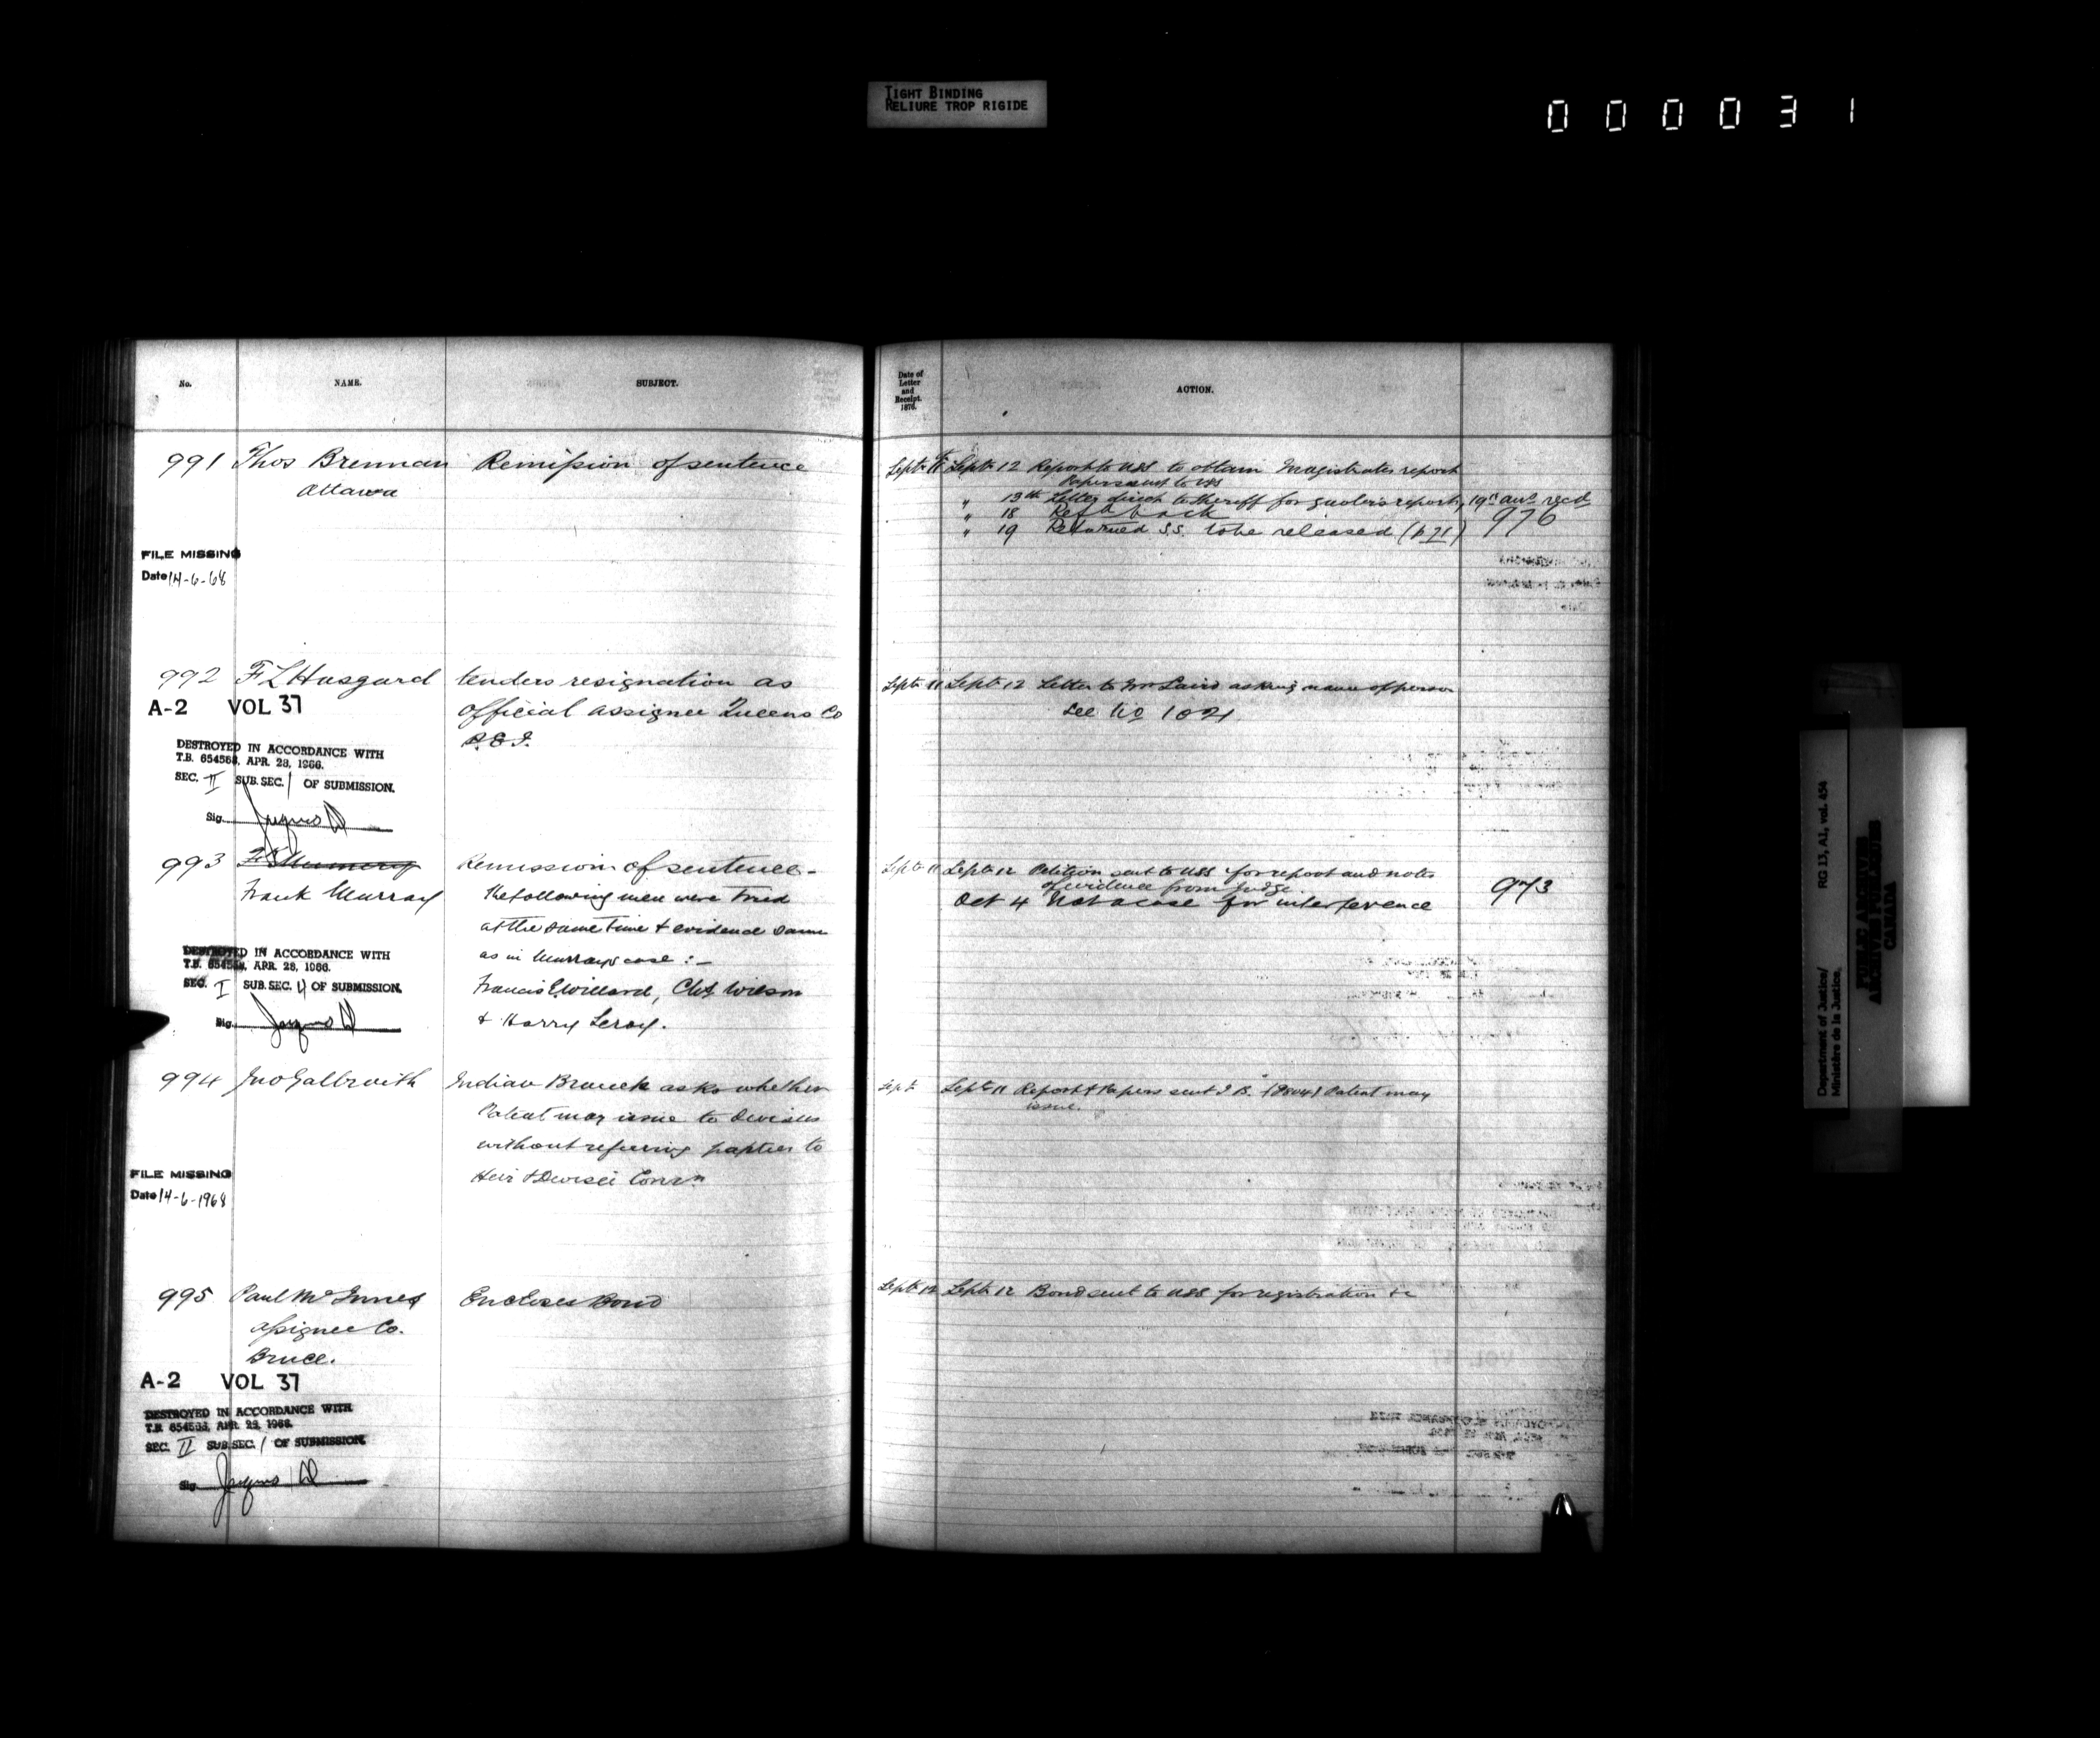 TIGHT BINDING
RELIURE TROP RIGIDE
000031
No.
NAME.
SUBJECT.
991 Thos Brennan Remission of sentence
Ottawa
FILE MISSING
Date 14-6-68
992 F L Hasgard tenders resignation as
A-2 VOL 37
official assignee Queens Co
P.E.I.
DESTROYED IN ACCORDANCE WITH
T.B. 654568, APR. 28, 1966.
SEC. II SUB. SEC. 1 OF SUBMISSION.
Sig.
993
Remission of sentence -
Frank Murray
the following men were tried
at the same time & evidence same
as in Murrays case :-
Francis E. Willard, Chs Wilson
& Harry Leroy.
DESTROYED IN ACCORDANCE WITH
T.B. 654568, APR. 28, 1966.
SEC. I SUB. SEC. 4 OF SUBMISSION.
Sig.
994 Jno Galbraith Indian Branch asks whether
Patent may issue to Devisees
without referring papers to
Heir & Devisee Comn
FILE MISSING
Date 14-6-1968
995 Paul McInnes Encloses Bond
assignee Co.
Bruce.
A-2 VOL 37
DESTROYED IN ACCORDANCE WITH
T.B. 654568, APR. 28, 1966.
SEC. II SUB. SEC. 1 OF SUBMISSION.
Sig.
Date of
Letter
and
Receipt.
1876.
ACTION.
Sept 11 Sept 12 Report to USS to obtain Magistrates report
Papers sent to USS
" 13th Letter direct to Sheriff for gaolers report, 19th ans recd
" 18 Refd back 976
" 19 Returned S.S. to be released (p 71)
Sept 11 Sept 12 Letter to Mr Laird asking name of person
See No 1021
Sept 11 Sept 12 Petition sent to USS for report and notes
of evidence from judge
973
Oct 4 Not a case for interference
Sept Sept 11 Report & Papers sent I B. Patent may
issue.
Sept 12 Sept 12 Bond sent to USS for registration &c
Department of Justice/
Ministère de la Justice.
RG 13, A1, vol. 454
PUBLIC ARCHIVES
ARCHIVES PUBLIQUES
CANADA